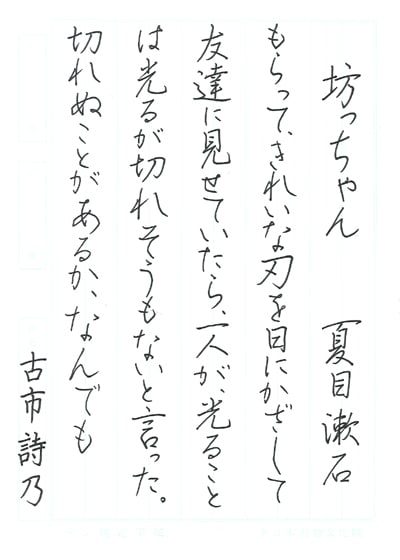 坊っちゃん　夏目漱石
もらって、きれいな刃を日にかざして
友達に見せていたら、一人が、光ること
は光るが切れそうもないと言った。
切れぬことがあるか、なんでも
古市詩乃